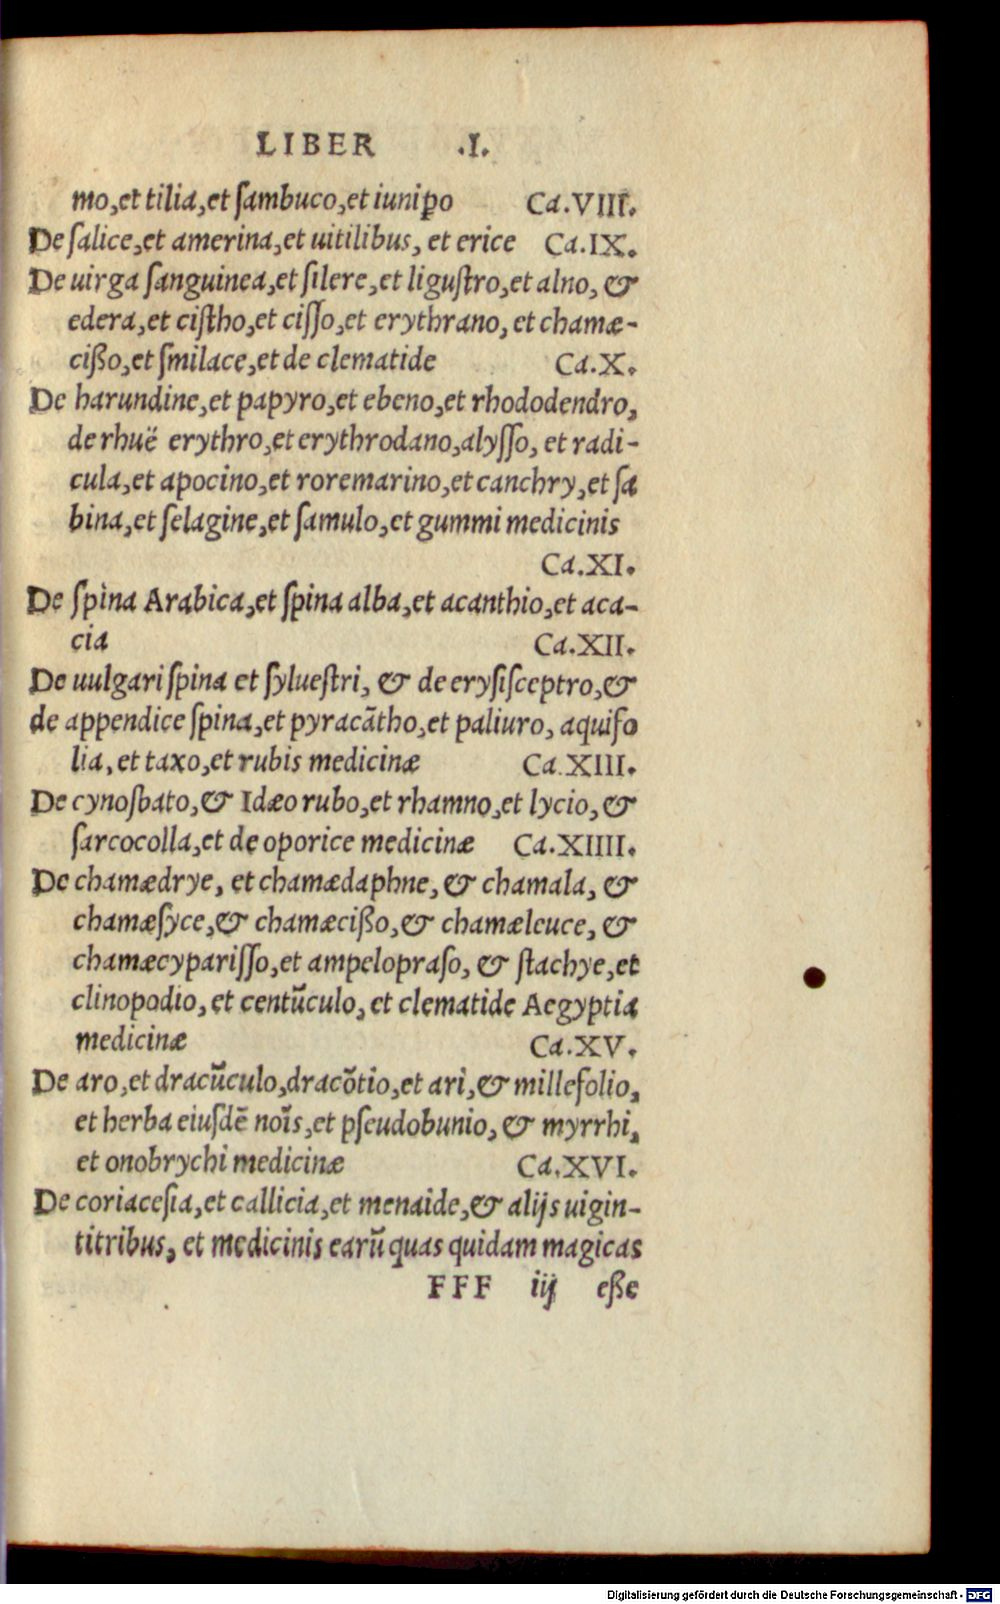 LIBER .I.
mo,et tilia,et ſambuco,et iunip̱o Ca.VIII.
De ſalice,et amerina,et uitilibus, et erice Ca.IX.
De uirga ſanguinea,et ſilere,et liguſtro,et alno, &
edera,et ciſtho,et ciſſo,et erythrano, et chamæ-
cißo,et ſmilace,et de clematide Ca.X.
De harundine,et papyro,et ebeno,et rhododendro,
de rhuë erythro,et erythrodano,alyſſo, et radi-
cula,et apocino,et roremarino,et canchry,et ſa
bina,et ſelagine,et ſamulo,et gummi medicinis
Ca.XI.
De ſpina Arabica,et ſpina alba,et acanthio,et aca-
cia Ca.XII.
De uulgari ſpina et ſylueſtri, & de eryſiſceptro,&
de appendice ſpina,et pyracãtho,et paliuro, aquifo
lia, et taxo,et rubis medicinæ Ca.XIII.
De cynoſbato,& Idæo rubo,et rhamno,et lycio,&
ſarcocolla,et de oporice medicinæ Ca.XIIII.
De chamædrye, et chamædaphne, & chamala, &
chamæſyce,& chamæcißo,& chamæleuce, &
chamæcypariſſo,et ampelopraſo, & ſtachye,et
clinopodio, et centũculo, et clematide Aegyptia
medicinæ Ca.XV.
De aro,et dracũculo,dracõtio,et ari,& millefolio,
et herba eiuſdẽ noĩs,et pſeudobunio, & myrrhi,
et onobrychi medicinæ Ca.XVI.
De coriaceſia,et callicia,et menaide,& alijs uigin-
titribus, et medicinis earũ quas quidam magicas
FFF iij eße
Digitalisierung gefördert durch die Deutsche Forschungsgemeinschaft - DFG